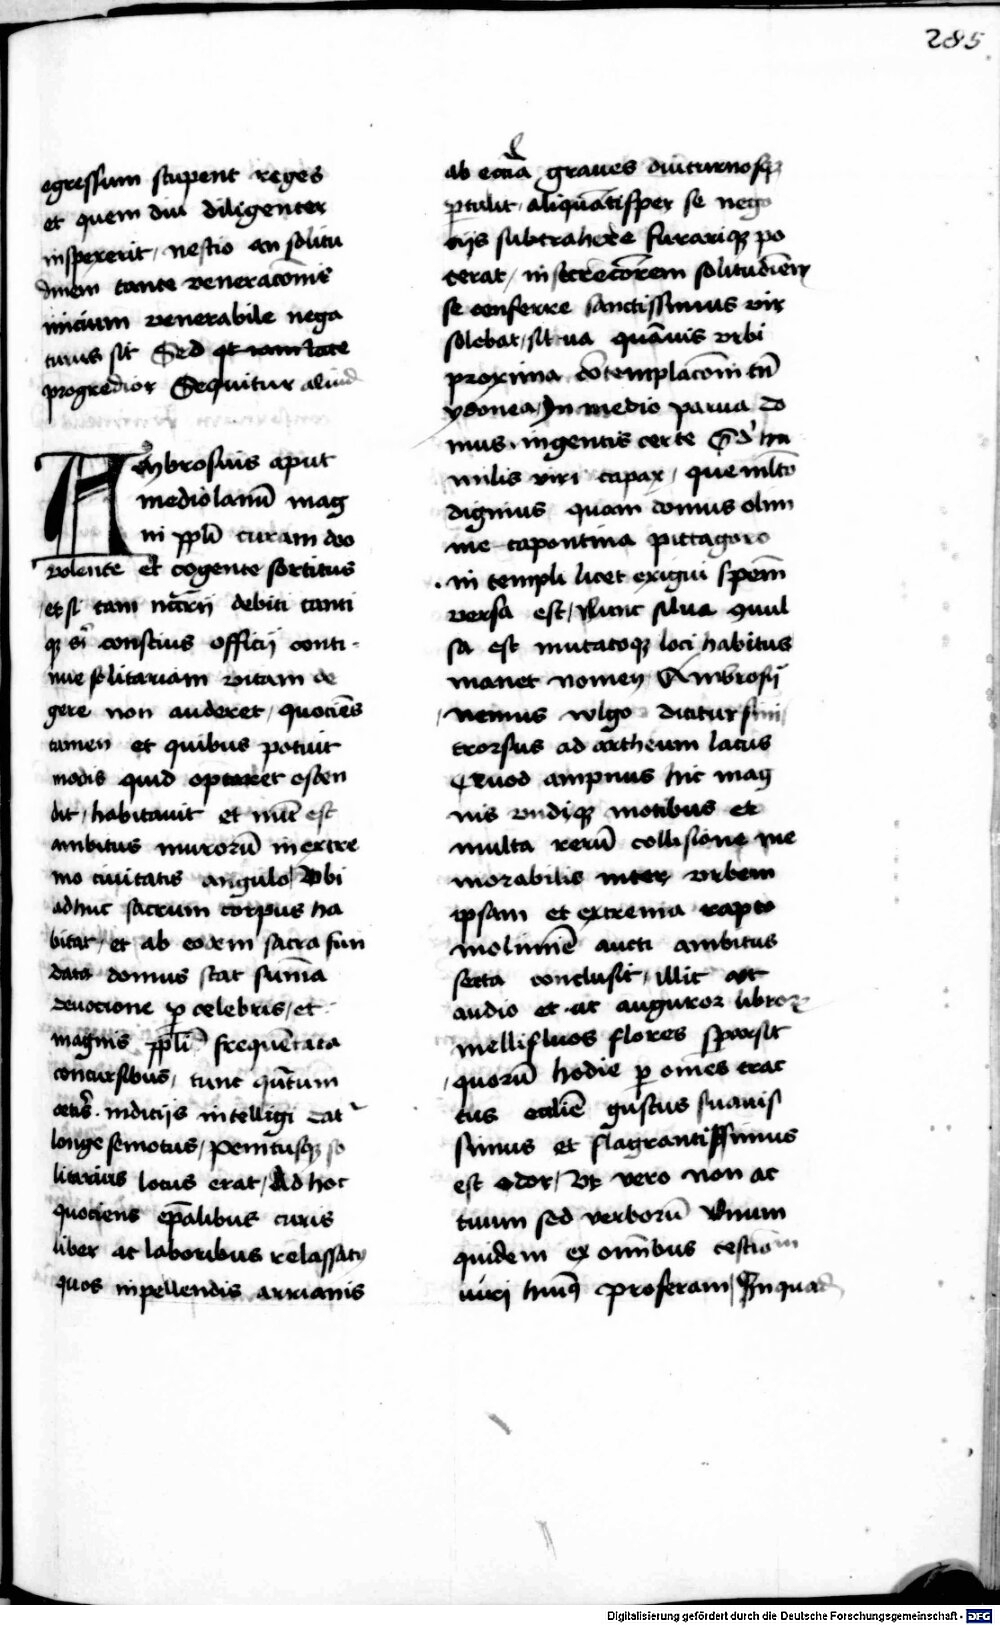 285
egressum stupent reges
et quem diu diligenter
inspexerit / nescio an solitu
dinem tante veneracōnis
inicium venerabile nega
turus sit Sed
progredior Sequitur aliud
Ambrosius aput
mediolanū mag
ni ppli curam deo
volente et cogente sortitus
et si tam debiti tanti
conscius officij conti
nue solitariam vitam de
gere non auderet / quociēs
tamen et quibus potuit
modis quid optaret osten
dit / habitauit et nūc est
ambitus murorū in extre
mo ciuitatis angulo / Vbi
adhuc sacrum corpus ha
bitat / et ab eodem sacra fun
data domus stat sum̄a
deuocione p celebris / et
magnis ppli frequētata
concursibus / tunc qn̄tum
indicijs intelligi dat
longe semotus / penitusqꝫ so
litarius locus erat / Ad hoc
quociens ep̄alibus curis
liber ac laboribus relassatꝰ
quos inpellendis arrianis
ab ecc̄ia graues diuturnosqꝫ
ꝑtulit / aliquātisper se nego
cijs subtrahere furariqꝫ po
terat / in secreciōrem solitudinem
se conferre sanctissimus vir
solebat / silua quāuis vrbi
proxima cōtemplacōni tn̄
ydonea / In medio parua do
mus . ingentis certe hu
milis viri capax / que mlto
dignius quam domus olim
ille tapontina pittagore
in templi licet exigui spem
versa est / Nunc silua conuul
sa est mutatoqꝫ loci habitus
manet nomen / Ambrosij
nemus wlgo dicitur / sini
trorsus ad artheum latus
Quod ampnus hic mag
nis vndiqꝫ motibus et
multa rerū collisione me
morabilis inter vrbem
ipsam et extrema rapto
molimīe aucti ambitus
septa conclusit / illic vt
audio et ut auguror libroꝝ
mellifluos flores sparsit
quorū hodie ꝑ omēs trac
tus eccl̄ie gustus suauis
simus et flagrantissimus
est odor / Vt vero non ac
tuum sed verborū vnum
quidem ex om̄ibus testiom
uirj huiꝰ proferam / In quad
Digitalisierung gefördert durch die Deutsche Forschungsgemeinschaft - DFG